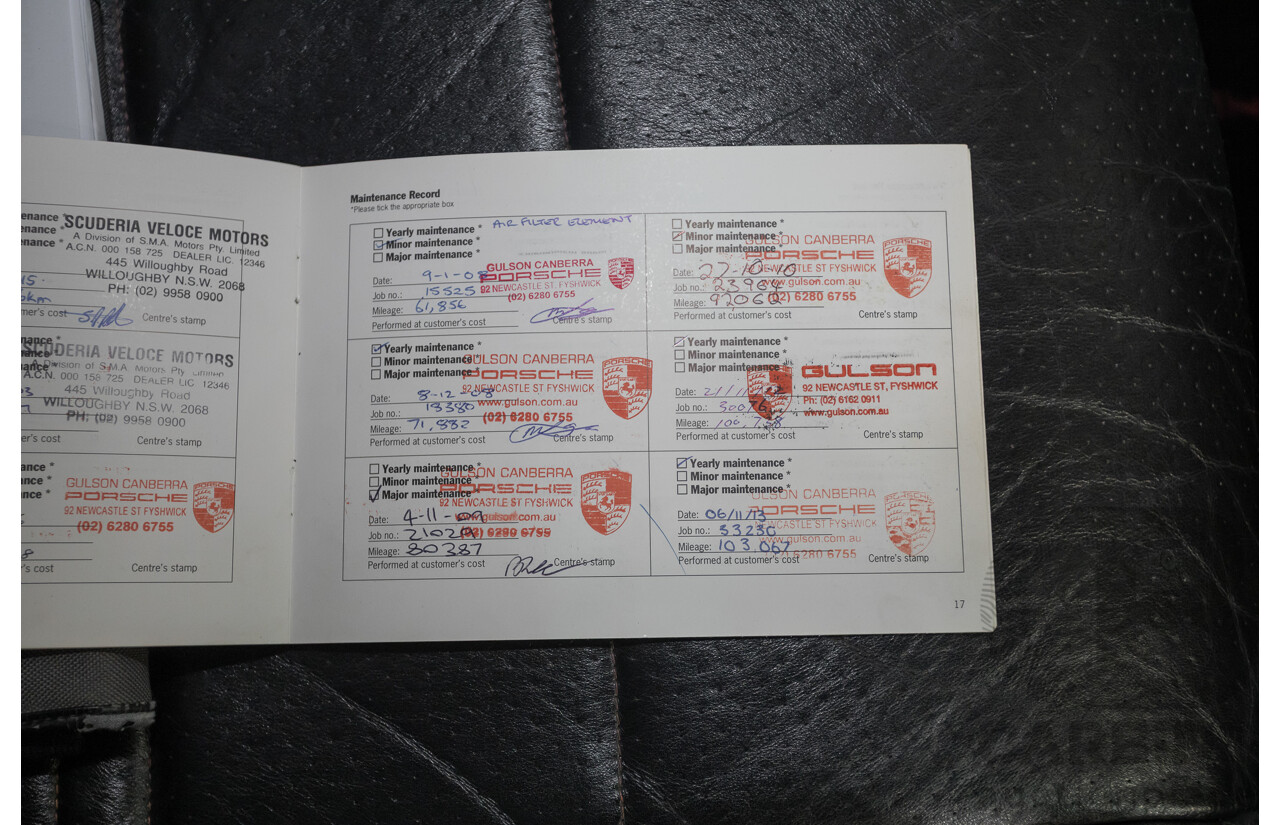 SCUDERIA VELOCE MOTORS
A Division of S.M.A. Motors Pty. Limited
A.C.N. 000 158 725 DEALER LIC. 12346
445 Willoughby Road
WILLOUGHBY N.S.W. 2068
PH: (02) 9958 0900
Centre's stamp
SCUDERIA VELOCE MOTORS
A Division of S.M.A. Motors Pty. Limited
A.C.N. 000 158 725 DEALER LIC 12346
445 Willoughby Road
WILLOUGHBY N.S.W. 2068
PH: (02) 9958 0900
Centre's stamp
GULSON CANBERRA
PORSCHE
92 NEWCASTLE ST FYSHWICK
(02) 6280 6755
Centre's stamp
Maintenance Record
*Please tick the appropriate box
AIR FILTER ELEMENT
Yearly maintenance *
Minor maintenance *
Major maintenance *
GULSON CANBERRA
PORSCHE
92 NEWCASTLE ST. FYSHWICK
(02) 6280 6755
Date: 9-1-08
Job no.: 15525
Mileage: 61,856
Performed at customer's cost
Centre's stamp
Yearly maintenance *
Minor maintenance *
Major maintenance *
GULSON CANBERRA
PORSCHE
92 NEWCASTLE ST FYSHWICK
www.gulson.com.au
(02) 6280 6755
Date: 8-12-08
Job no.: 18380
Mileage: 71,882
Performed at customer's cost
Centre's stamp
Yearly maintenance *
Minor maintenance *
Major maintenance *
GULSON CANBERRA
PORSCHE
92 NEWCASTLE ST FYSHWICK
www.gulson.com.au
(02) 6280 6755
Date: 4-11-09
Job no.:
Mileage: 80387
Performed at customer's cost
Centre's stamp
Yearly maintenance *
Minor maintenance *
Major maintenance *
GULSON CANBERRA
PORSCHE
NEWCASTLE ST FYSHWICK
www.gulson.com.au
(02) 6280 6755
Date: 27-10-10
Job no.: 23964
Mileage: 92062
Performed at customer's cost
Centre's stamp
Yearly maintenance *
Minor maintenance *
Major maintenance *
GULSON
92 NEWCASTLE ST, FYSHWICK
Ph: (02) 6162 0911
www.gulson.com.au
Date:
Job no.:
Mileage:
Performed at customer's cost
Centre's stamp
Yearly maintenance *
Minor maintenance *
Major maintenance *
GULSON CANBERRA
PORSCHE
NEWCASTLE ST FYSHWICK
www.gulson.com.au
6280 6755
Date: 06/11/13
Job no.: 53236
Mileage: 103,067
Performed at customer's cost
Centre's stamp
17